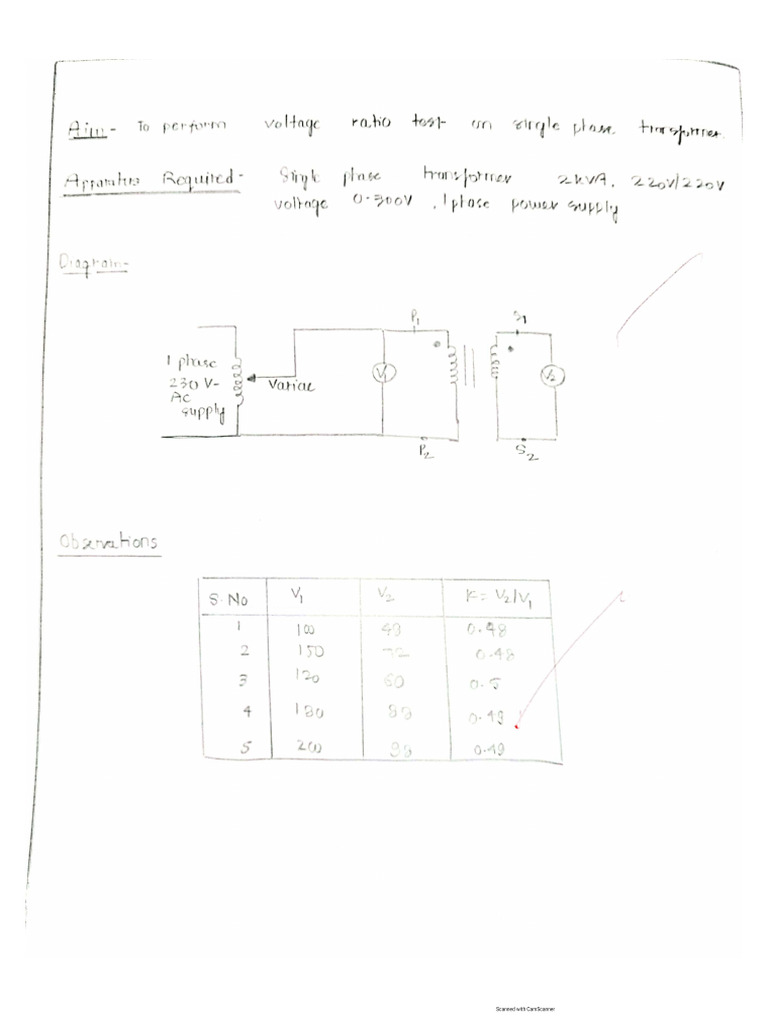 Aim- To perform voltage ratio test on single phase transformer.
Apparatus Required- Single phase transformer 2kVA, 220V/220V
voltage 0-300V, 1 phase power supply
Diagram-
P1
S1
1 phase
230 V-
AC
supply
Variac
V1
V2
P2
S2
Observations
S.No V1 V2 K= V2/V1
1 100 48 0.48
2 150 72 0.48
3 120 60 0.5
4 180 0.49
5 200 0.49
Scanned with CamScanner